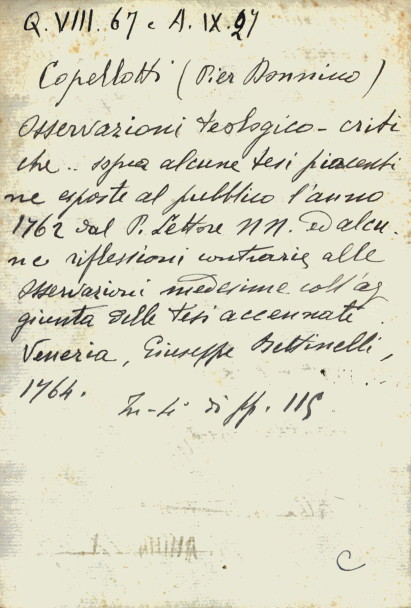 Q. VIII. 67 e A. IX. 27
Copellotti (Pier Donnino)
Osservazioni teologico-criti
che .. sopra alcune tesi piacenti
ne esposte al pubblico l'anno
1762 dal P. Lettore NN. ed alcu-
ne riflessioni contrarie alle
osservazioni medesime coll'ag
giunta delle tesi accennate.
Venezia, Giuseppe Bettinelli,
1764.
In-4° di pp. 115
C